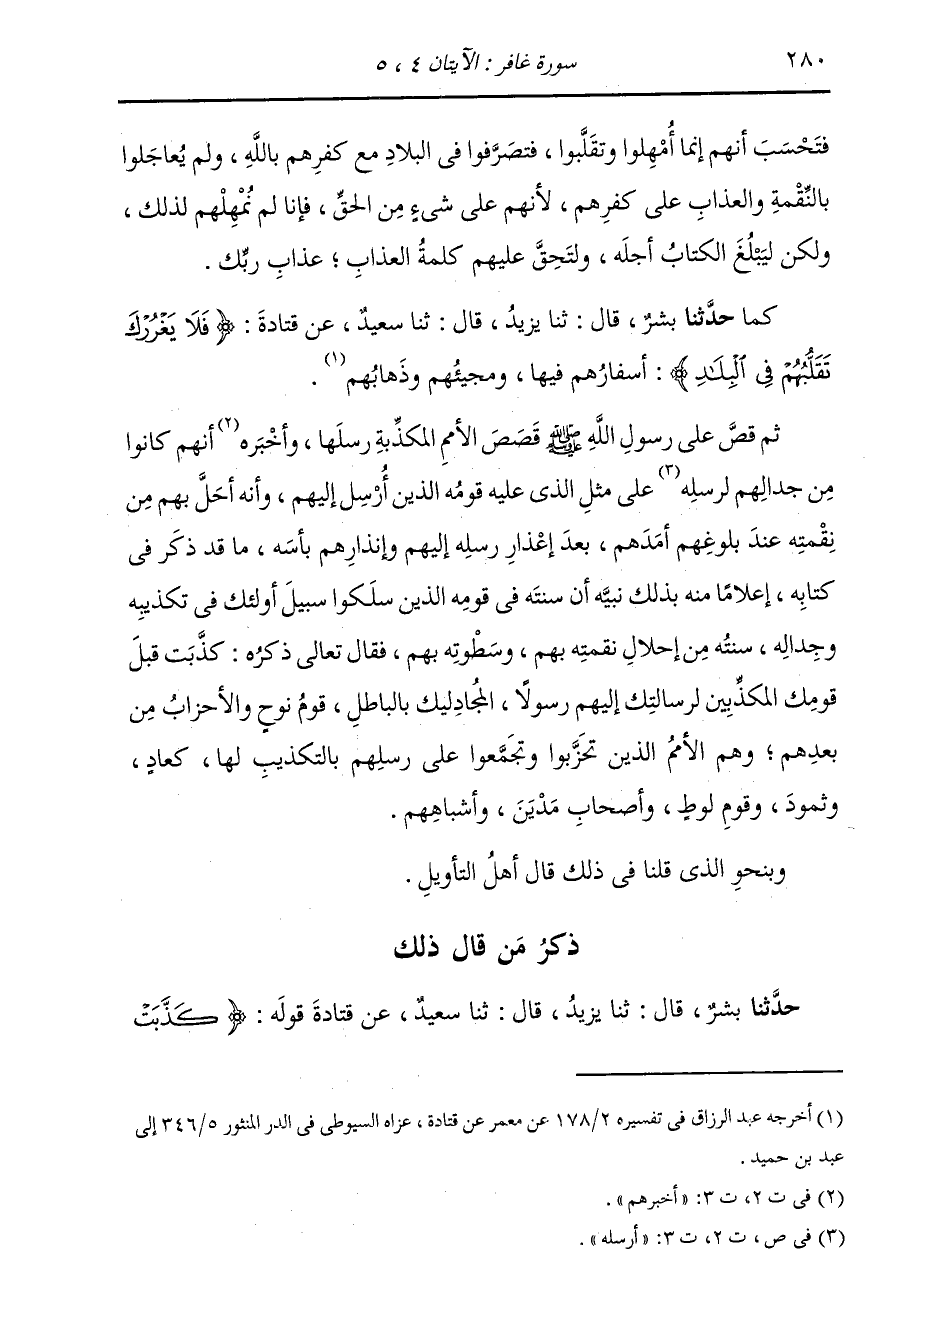 ٢٨٠
سورة غافر : الآيتان ٤ ، ٥
فتَحْسَبَ أنهم إنما أُمْهِلوا وتقَلَّبوا ، فتصَرَّفوا فى البلادِ مع كفرِهم باللَّهِ ، ولم يُعاجَلوا
بالنِّقْمةِ والعذابِ على كفرِهم ، لأنهم على شىءٍ مِن الحقِّ ، فإنا لم نُمْهِلْهم لذلك ،
ولكن ليَبْلُغَ الكتابُ أجلَه ، ولتَحِقَّ عليهم كلمةُ العذابِ ؛ عذابِ ربِّك .
كما حدَّثنا بشرٌ ، قال : ثنا يزيدُ ، قال : ثنا سعيدٌ ، عن قتادةَ : ﴿ فَلَا يَغْرُرْكَ
تَقَلُّبُهُمْ فِي ٱلْبِلَٰدِ ﴾ : أسفارُهم فيها ، ومجيئُهم وذَهابُهم(١) .
ثم قصَّ على رسولِ اللَّهِ ﷺ قَصَصَ الأممِ المكذِّبةِ رسلَها ، وأخْبَره(٢) أنهم كانوا
مِن جدالِهم لرسلِه(٣) على مثلِ الذى عليه قومُه الذين أُرْسِل إليهم ، وأنه أحَلَّ بهم مِن
نِقْمتِه عندَ بلوغِهم أمَدَهم ، بعدَ إعْذارِ رسلِه إليهم وإنذارِهم بأسَه ، ما قد ذكَر فى
كتابِه ، إعلامًا منه بذلك نبيَّه أن سنتَه فى قومِه الذين سلَكوا سبيلَ أولئك فى تكذيبِه
وجِدالِه ، سنتُه مِن إحلالِ نقمتِه بهم ، وسَطْوتِه بهم ، فقال تعالى ذكرُه : كذَّبَت قبلَ
قومِك المكذِّبِين لرسالتِك إليهم رسولًا ، المُجادِليك بالباطلِ ، قومُ نوحٍ والأحزابُ مِن
بعدِهم ؛ وهم الأممُ الذين تحَزَّبوا وتجَمَّعوا على رسلِهم بالتكذيبِ لها ، كعادٍ ،
وثمودَ ، وقومِ لوطٍ ، وأصحابِ مَدْيَنَ ، وأشباهِهم .
وبنحوِ الذى قلنا فى ذلك قال أهلُ التأويلِ .
ذكرُ مَن قال ذلك
حدَّثنا بشرٌ ، قال : ثنا يزيدُ ، قال : ثنا سعيدٌ ، عن قتادةَ قولَه : ﴿ كَذَّبَتْ
(١) أخرجه عبد الرزاق فى تفسيره ١٧٨/٢ عن معمر عن قتادة ، عزاه السيوطى فى الدر المنثور ٣٤٦/٥ إلى
عبد بن حميد .
(٢) فى ت ٢، ت ٣: «أخبرهم» .
(٣) فى ص ، ت ٢، ت ٣: «أرسله» .